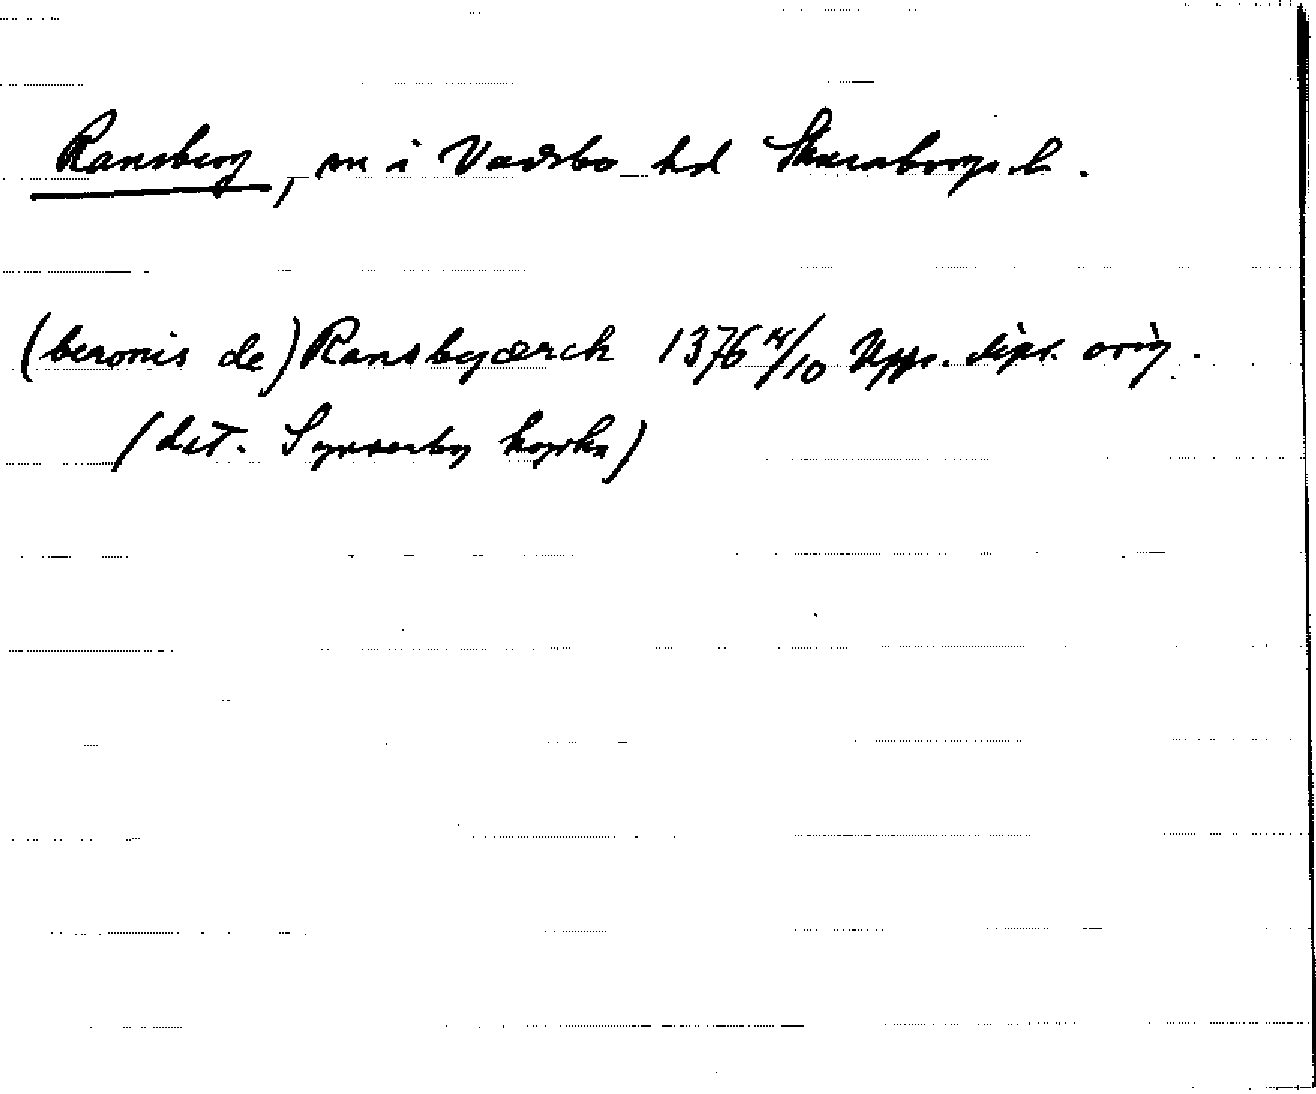 Ransberg, sn i Vadsbo hd Skaraborgs l.
(beronis de) Ransbyærch 1376 14/10 Upps. dipl. orig.
(det. Synnerby kopia)